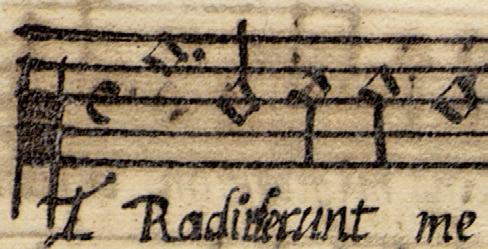 T Radiderunt me